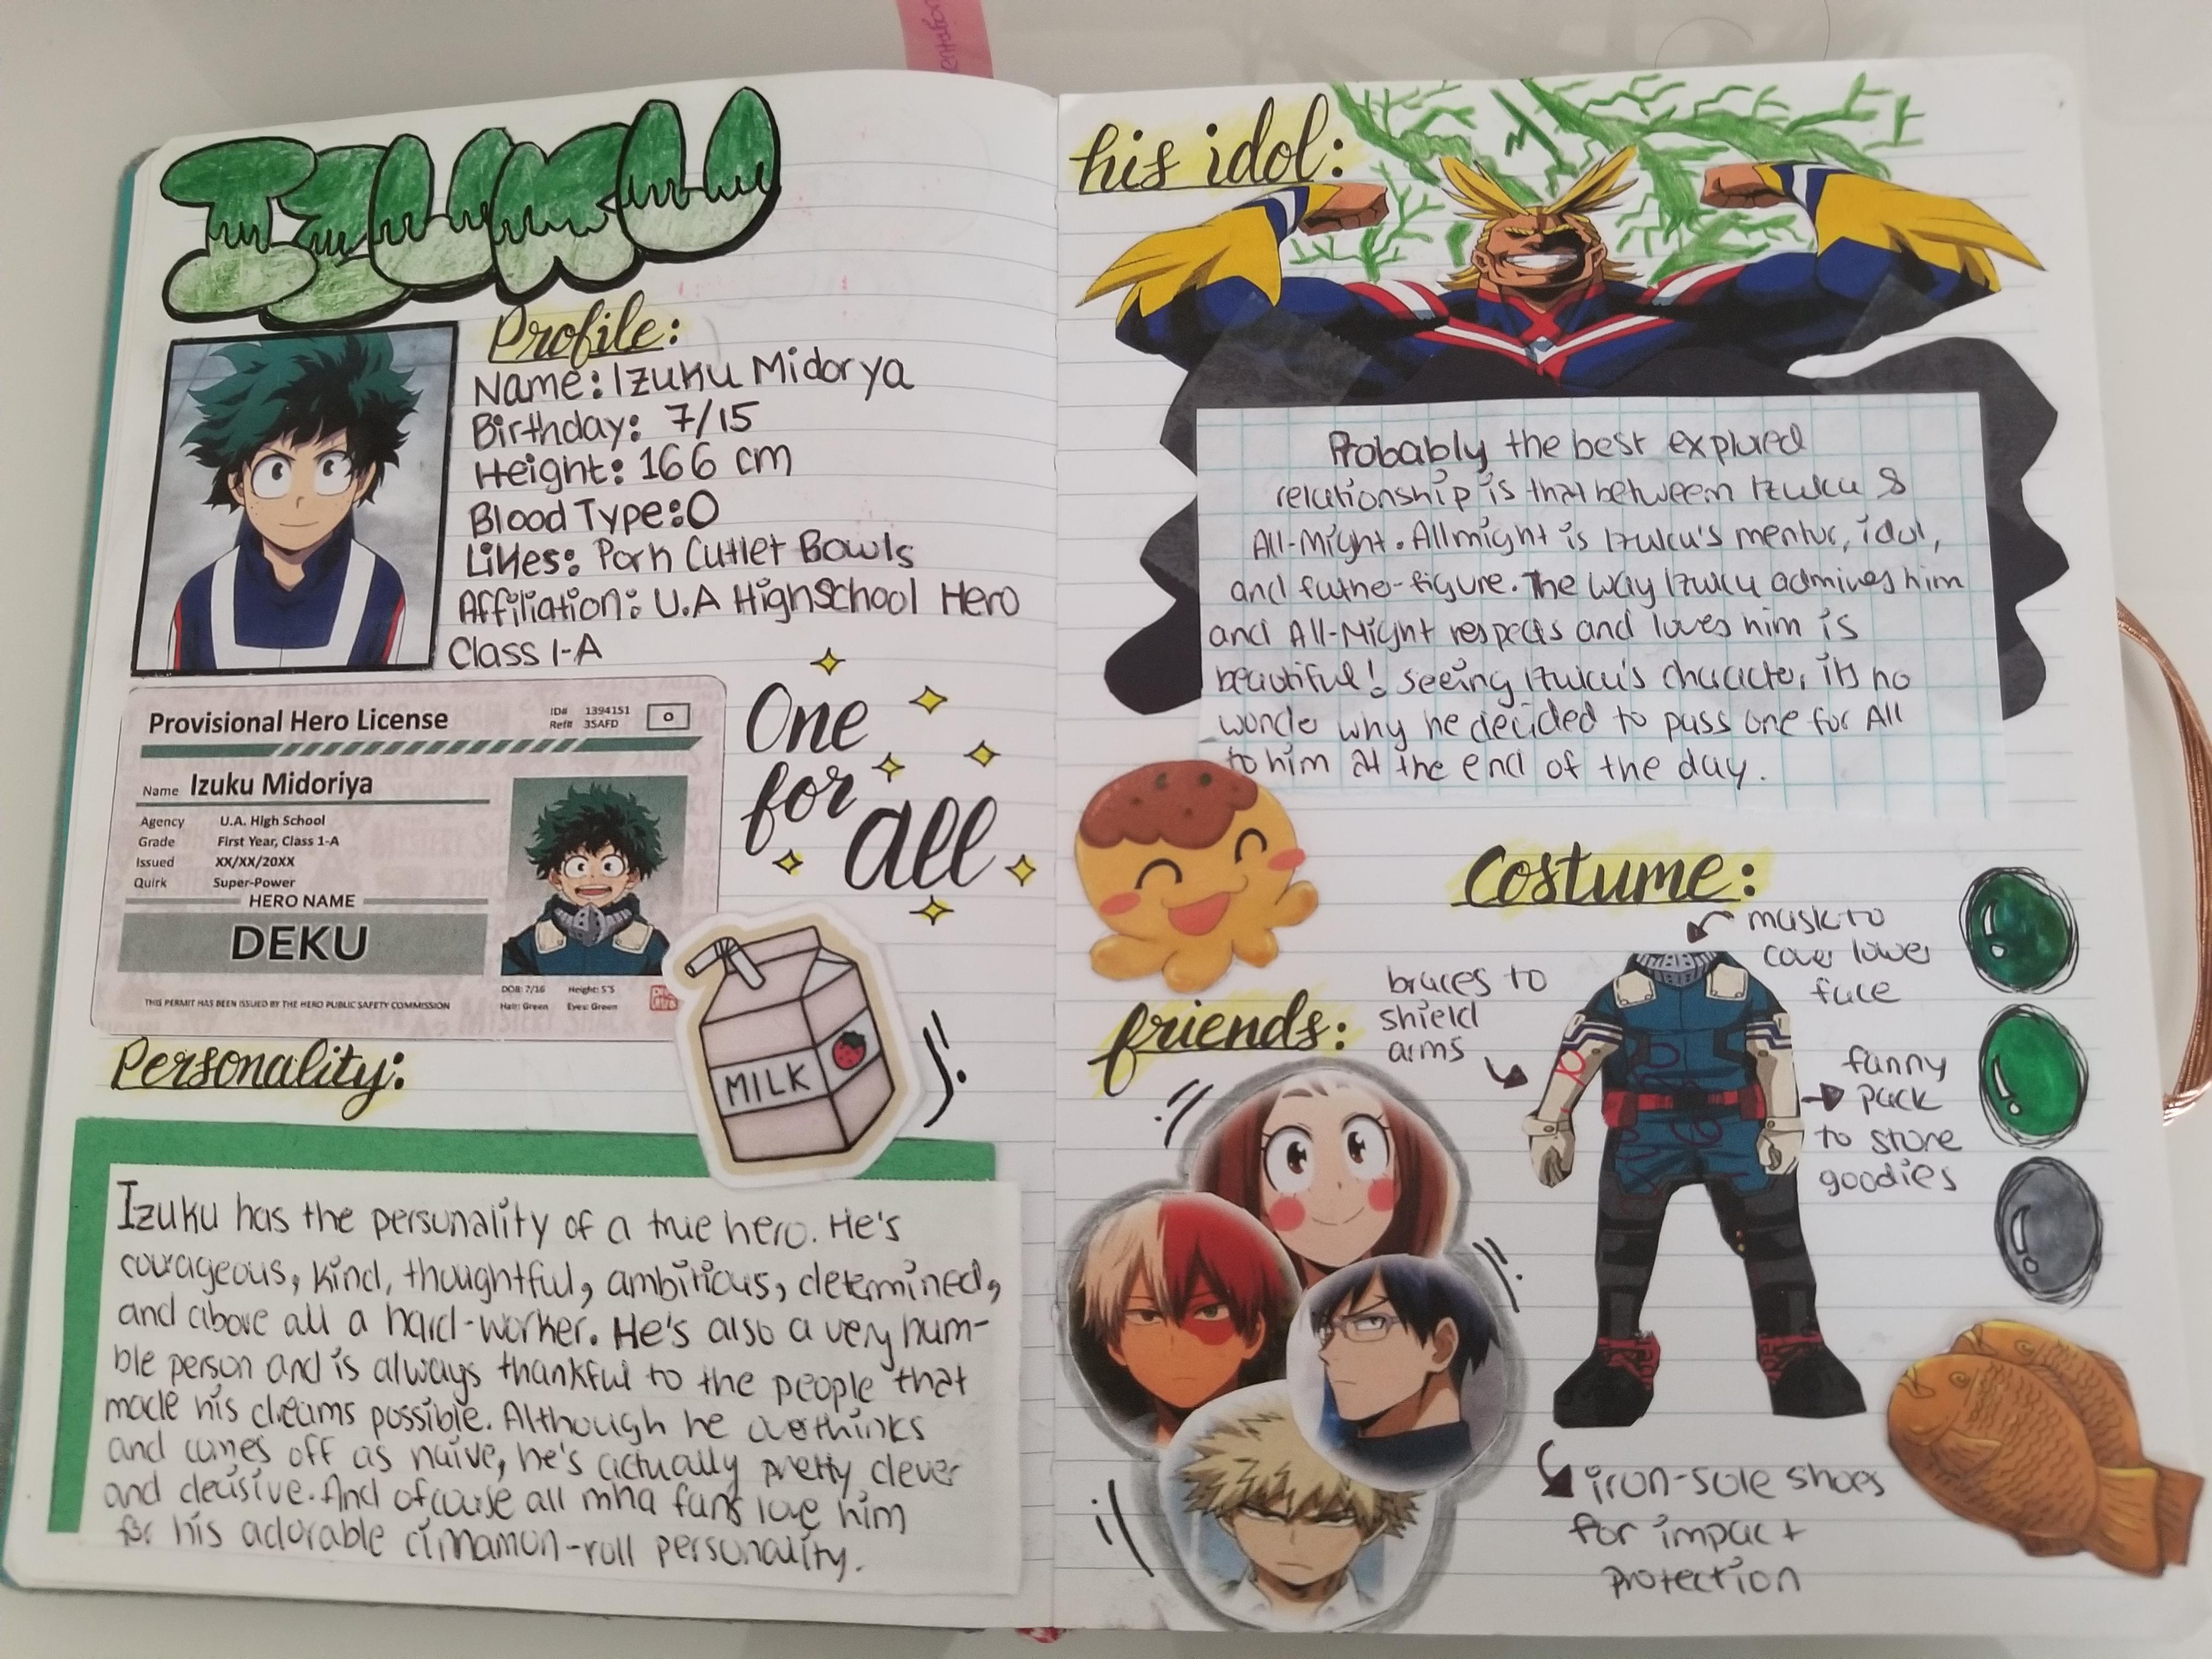 IZUKU
Profile:
Name: Izuku Midorya
Birthday: 7/15
Height: 166 cm
Blood Type: O
Likes: Pork Cutlet Bowls
Affiliation: U.A Highschool Hero
Class 1-A
Provisional Hero License
ID# 1394151
Ref# 3SAFD
O
Name Izuku Midoriya
Agency U.A. High School
Grade First Year, Class 1-A
Issued XX/XX/20XX
Quirk Super-Power
HERO NAME
DEKU
THIS PERMIT HAS BEEN ISSUED BY THE HERO PUBLIC SAFETY COMMISSION
DOB: 7/16 Height: 5'5
Hair: Green Eyes: Green
One
for
all
MILK
Personality:
Izuku has the personality of a true hero. He's
courageous, kind, thoughtful, ambitious, determined,
and above all a hard-worker. He's also a very hum-
ble person and is always thankful to the people that
made his dreams possible. Although he overthinks
and comes off as naive, he's actually pretty clever
and decisive. And ofcourse all mha fans love him
for his adorable cinnamon-roll personality.
his idol:
Probably the best explored
relationship is that between Izuku &
All-Might. Allmight is Izuku's mentor, idol,
and father-figure. The way Izuku admires him
and All-Might respects and loves him is
beautiful! seeing Izuku's character, its no
wonder why he decided to pass One for All
to him at the end of the day.
Costume:
mask to
cover lower
face
braces to
shield
arms
fanny
pack
to store
goodies
iron-sole shoes
for impact
protection
friends: